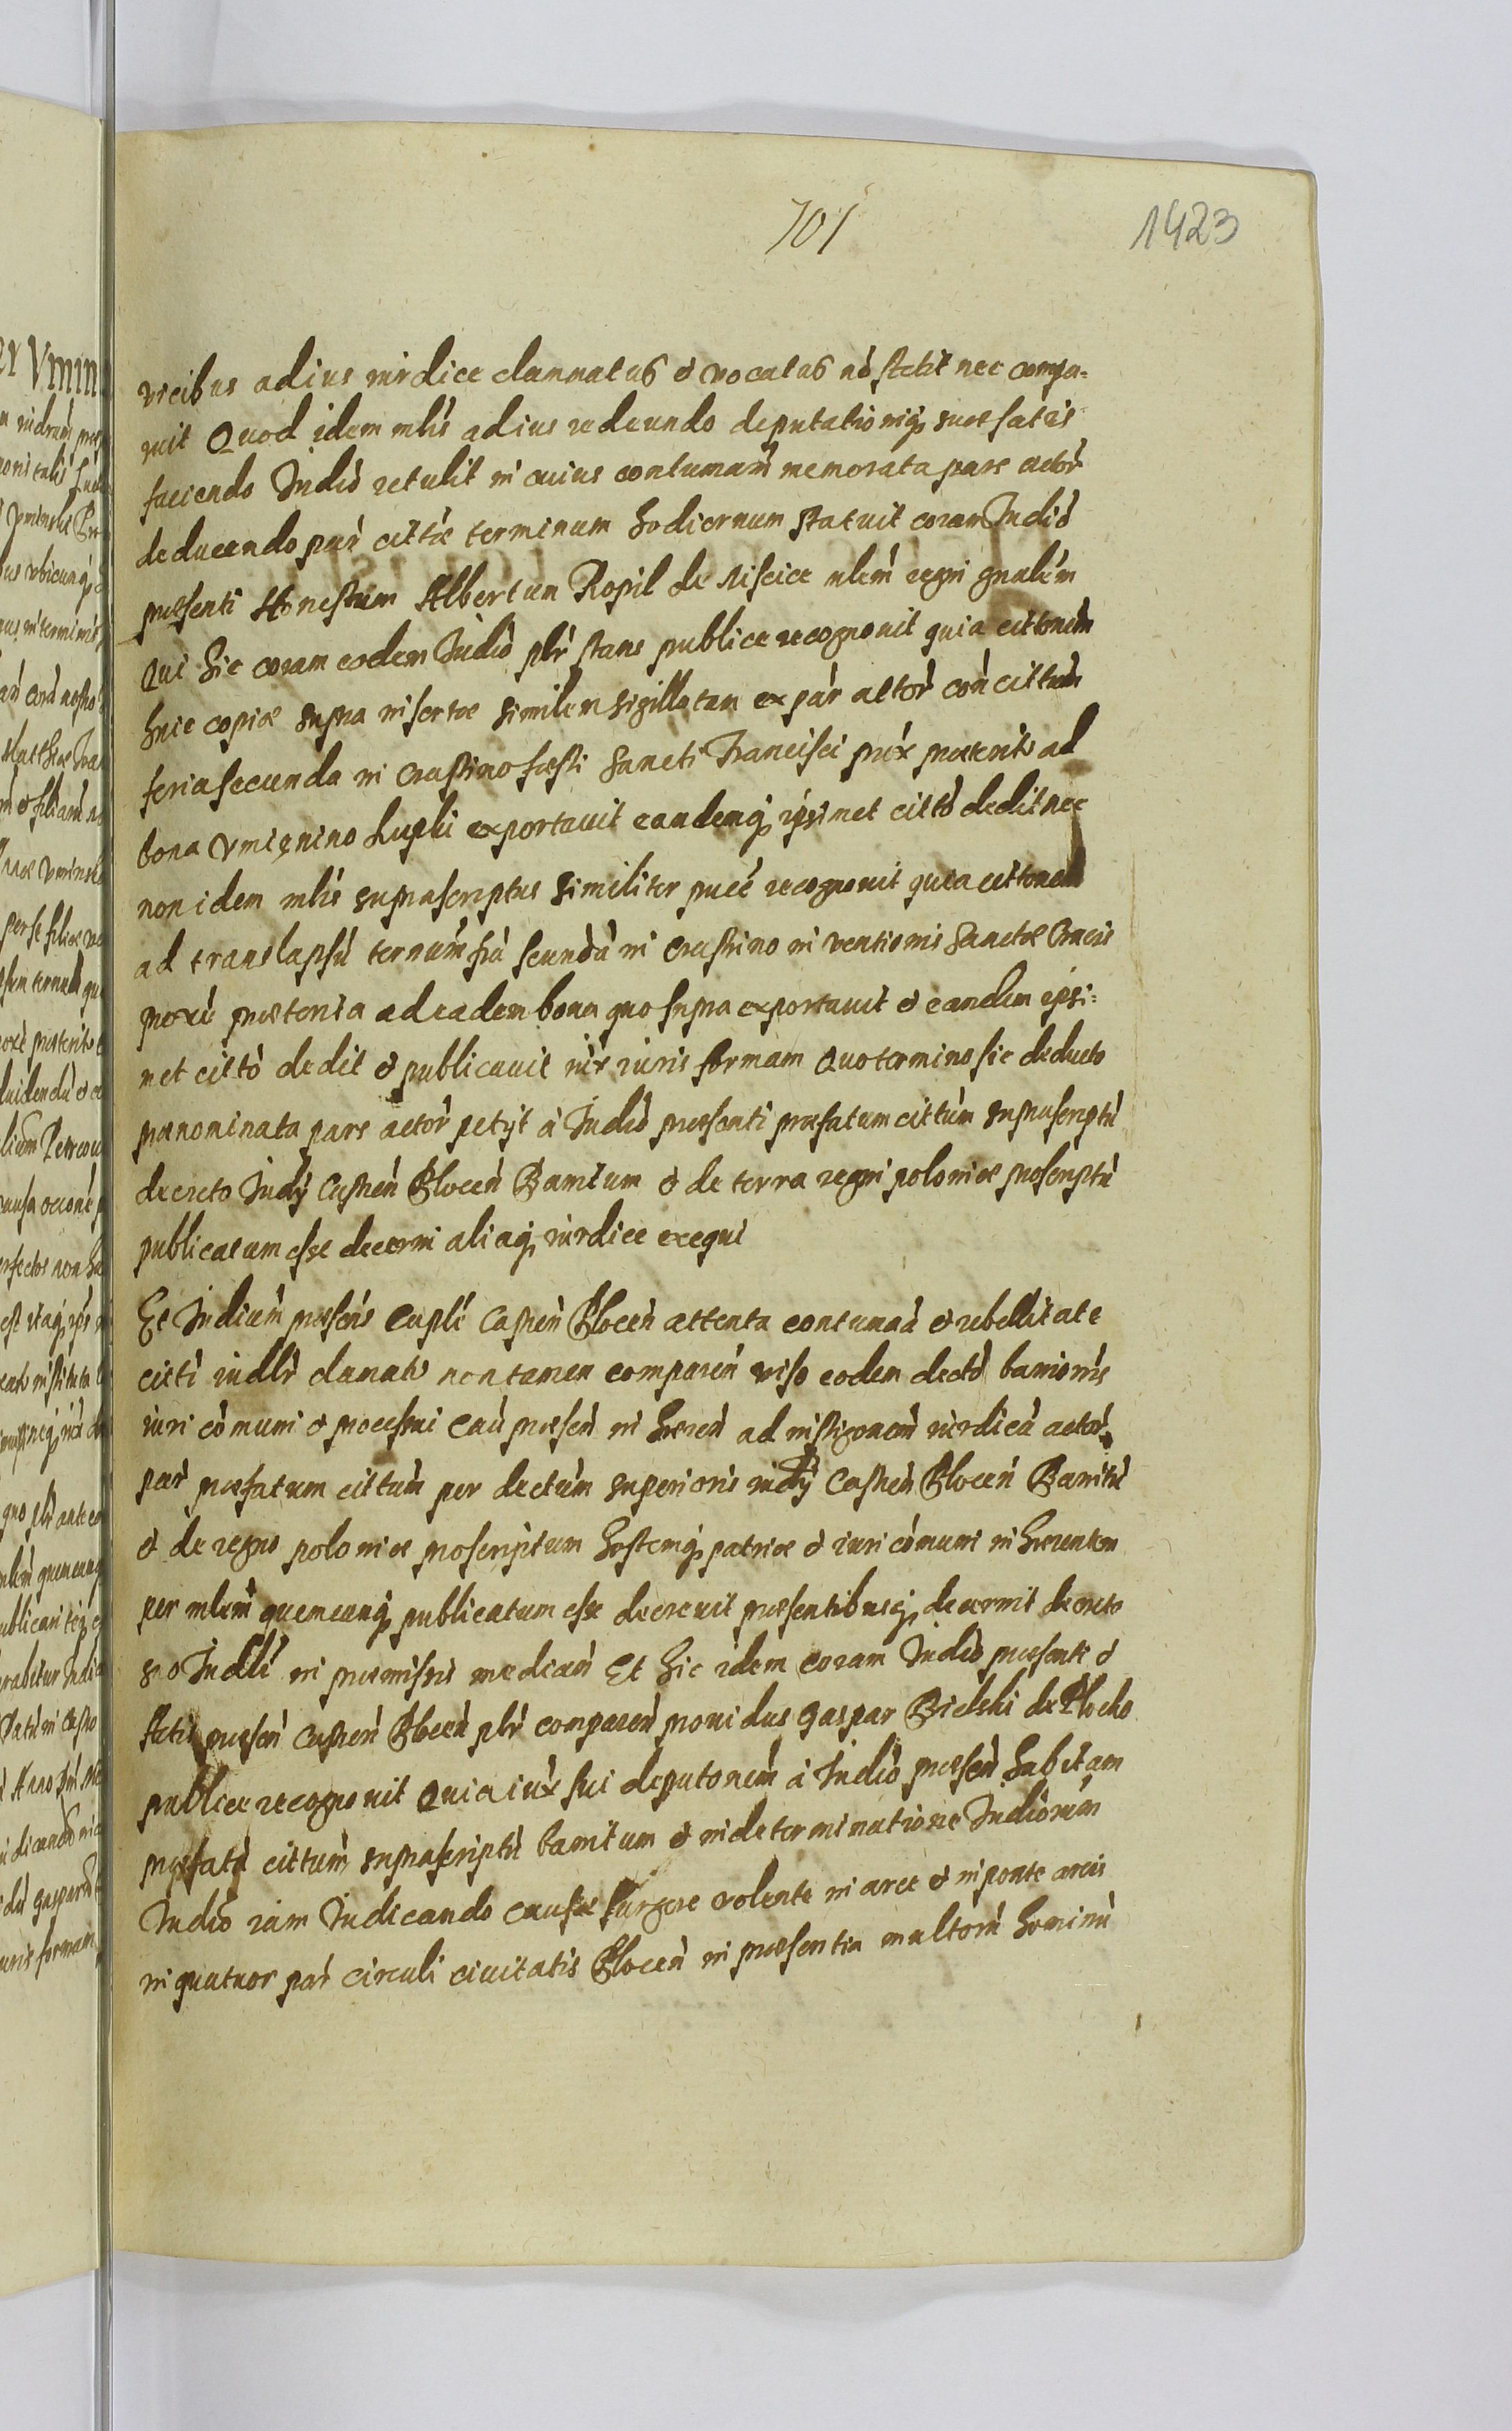 701
1423
vicibus ad ius iurdice clamatus & vocatus nō stetit nec compa-
ruit Quod idem mlis ad ius redeundo deputationiq suae satis
faciendo Indiō retulit in cuius contumam memorata pars actor
deducendo par citte terminum hodiernum statuit coram Indiō
praesenti Honestum Albertum Ropil de Niscice mlem regni gnalem
Qui hic coram eodem Indiō plr stans publice recognovit quia cittonem
huic copiae supra insertae similem sigillatam ex par actor con cittum
feria secunda in crastino festi Sancti Francisci prōx praeterit ad
bona Umienino Lupki exportavit eandemq ipsimet cittō dedit nec
non idem mlis suprascriptus similiter puce recognovit quia cittonem
ad translapsū ternum fria scunda in crastino inventionis Sanctae Crucis
proxie praeterita ad eadem bona quo supra exportavit & eandem ipsi=
met cittō dedit & publicavit iux iuris formam Quo termino sic deducto
pranominata pars actor petyt à Indiō praesenti praefatum cittum suprascriptū
decreto Indÿ Castren Plocen Banitum & de terra regni poloniae proscriptū
publicatum esse decerni aliaq iurdice exequi
Et Indicium praesens Capli Castren Plocen attenta contumaā & rebellitate
citti indlr clamati non tamen comparen viso eodem dectō banionis
iuri cōmuni & processui caū praesen in hæren ad instigonem iurdicā actor
par praefatum cittum per dectum superioris indÿ Castren Plocen Banitū
& de regno poloniae proscriptum hostemq patriae & iuri cōmuni inhærentem
per mlem quemcunq publicatum esse decrevit praesentibusq decernit decreto
suo Indlī in praemissis median Et hic idem coram Indiō praesenti &
Actis praesen Castren Plocen plr comparen providus Gaspar Bielski de Plocko
publice recognovit Quia iux sui deputonem à Indiō praesen habitam
praefatū cittum suprascriptū banitum & in determinatione Indiorum
Indiō iam Indicando causae surgere volente in arce & in ponte arcis
in quatuor par circuli civitatis Plocen in praesentia multorū hominū